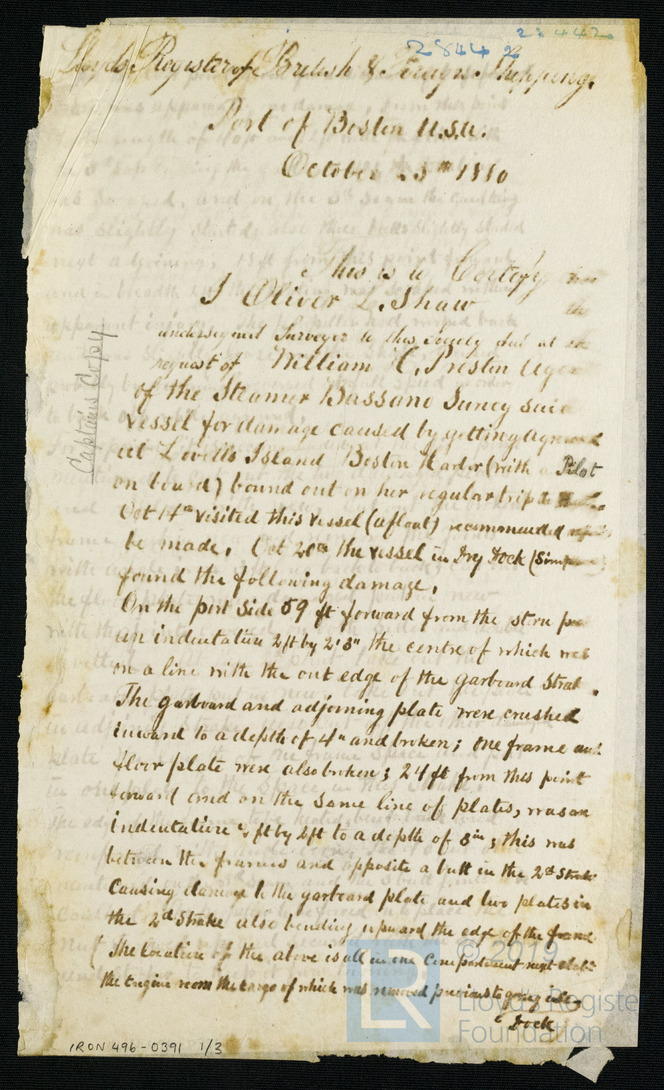 28442
28442
Lloyds Register of British & Foreign Shipping.
Port of Boston U.S.A.
October 25th 1880
This is to Certify that
I Oliver L. Shaw the
undersigned Surveyor to this Society did at the
request of William C. Preston Agent
of the Steamer Bassano Survey said
vessel for damage caused by getting aground
at Lovells Island Boston Harbor (with a Pilot
on board) bound out on her regular trip to
Oct 14th visited this vessel (afloat) recommended
be made. Oct 20th the vessel in Dry Dock
found the following damage.
On the port Side 59 ft forward from the stern
an indentation 2ft by 2'3" the centre of which was
on a line with the out edge of the garboard Strak.
The garboard and adjoining plate were crushed
inward to a depth of 4" and broken; one frame and
floor plate were also broken; 24 ft from this point
forward and on the same line of plates, was an
indentation ft by 2ft to a depth of 3in; this was
between the frames and opposite a butt in the 2nd Strake
Causing damage to the garboard plate and two plates in
the 2d Strake also bending upward the edge of the frame
The Location of the above is all in one Compartment next
the Engine room the cargo of which was removed previous to going into
Dock
Captains Copy
IRON 496-0391 1/3
LR
© 2019
Lloyd's Register
Foundation